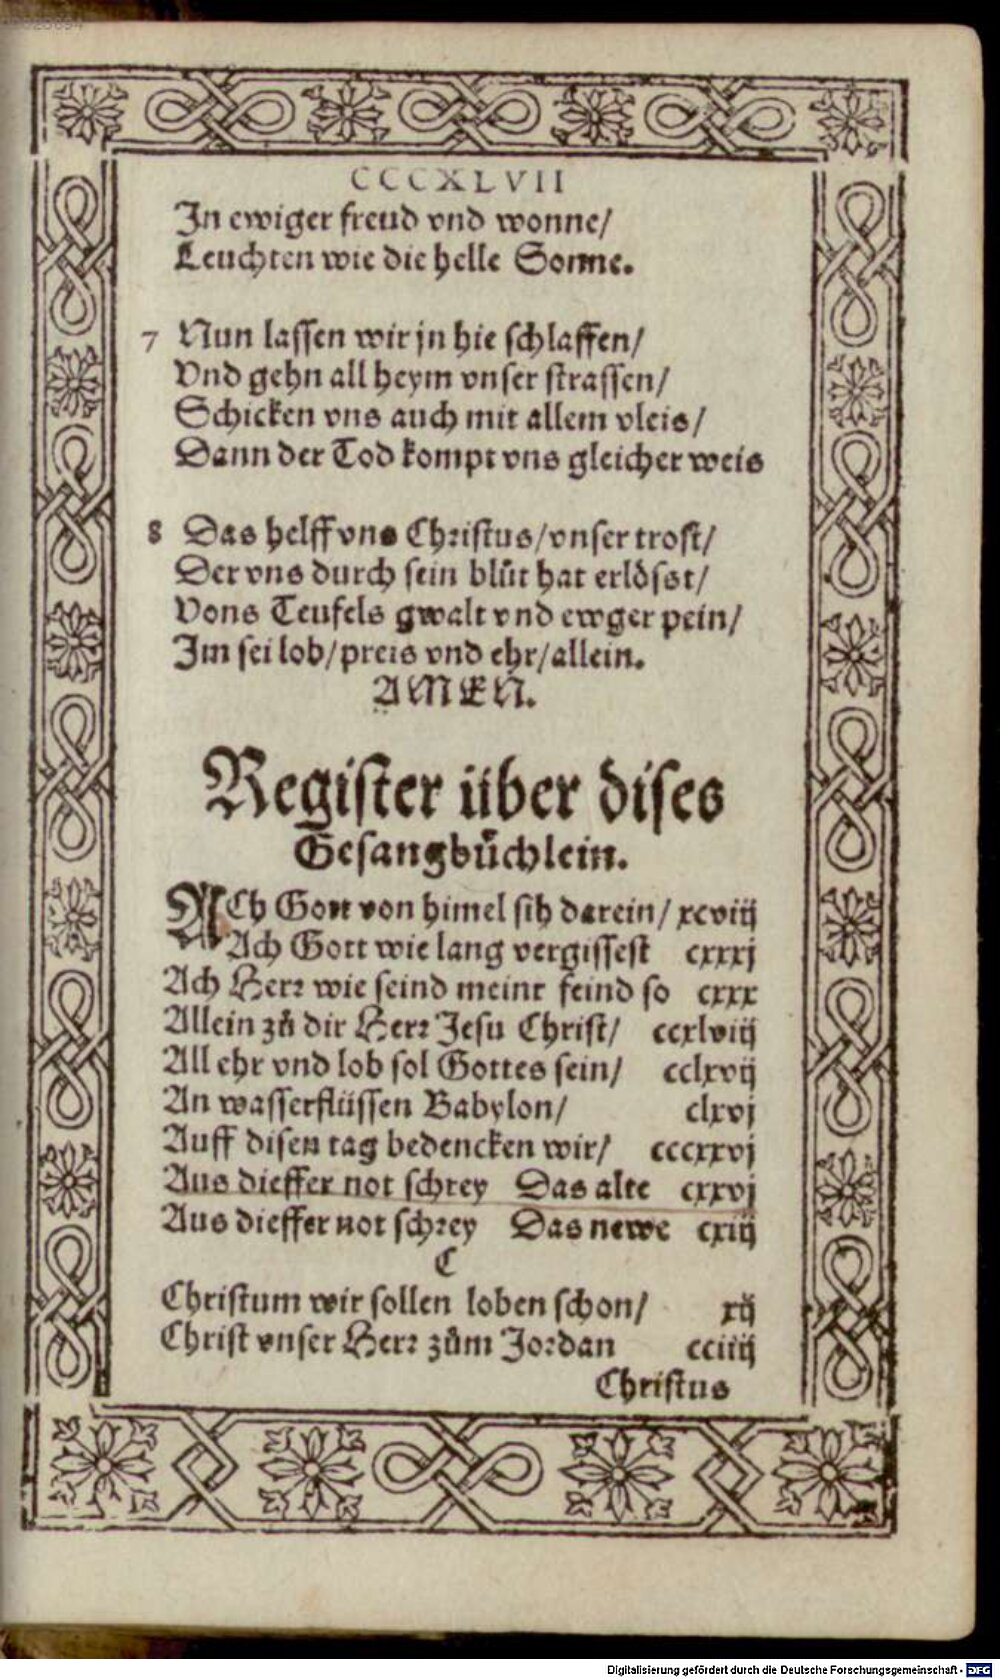 CCCXLVII
In ewiger freud vnd wonne/
Leuchten wie die helle Sonne.
7 Nun lassen wir jn hie schlaffen/
Vnd gehn all heym vnser strassen/
Schicken vns auch mit allem vleis/
Dann der Tod kompt vns gleicher weis
8 Das helff vns Christus/vnser trost/
Der vns durch sein blůt hat erlösst/
Vons Teufels gwalt vnd ewger pein/
Im sei lob/preis vnd ehr/allein.
AMEN.
Register über dises
Gesangbüchlein.
ACh Gott von himel sih darein/ xcviij
Ach Gott wie lang vergissest cxxxj
Ach Herr wie seind meinr feind so cxxx
Allein zů dir Herr Jesu Christ/ ccxlviij
All ehr vnd lob sol Gottes sein/ cclxvij
An wasserflüssen Babylon/ clxvj
Auff disen tag bedencken wir/ cccxxvj
Aus dieffer not schrey Das alte cxxvj
Aus dieffer not schrey Das newe cxiij
C
Christum wir sollen loben schon/ xij
Christ vnser Herr zům Jordan cciiij
Christus
Digitalisierung gefördert durch die Deutsche Forschungsgemeinschaft - DFG